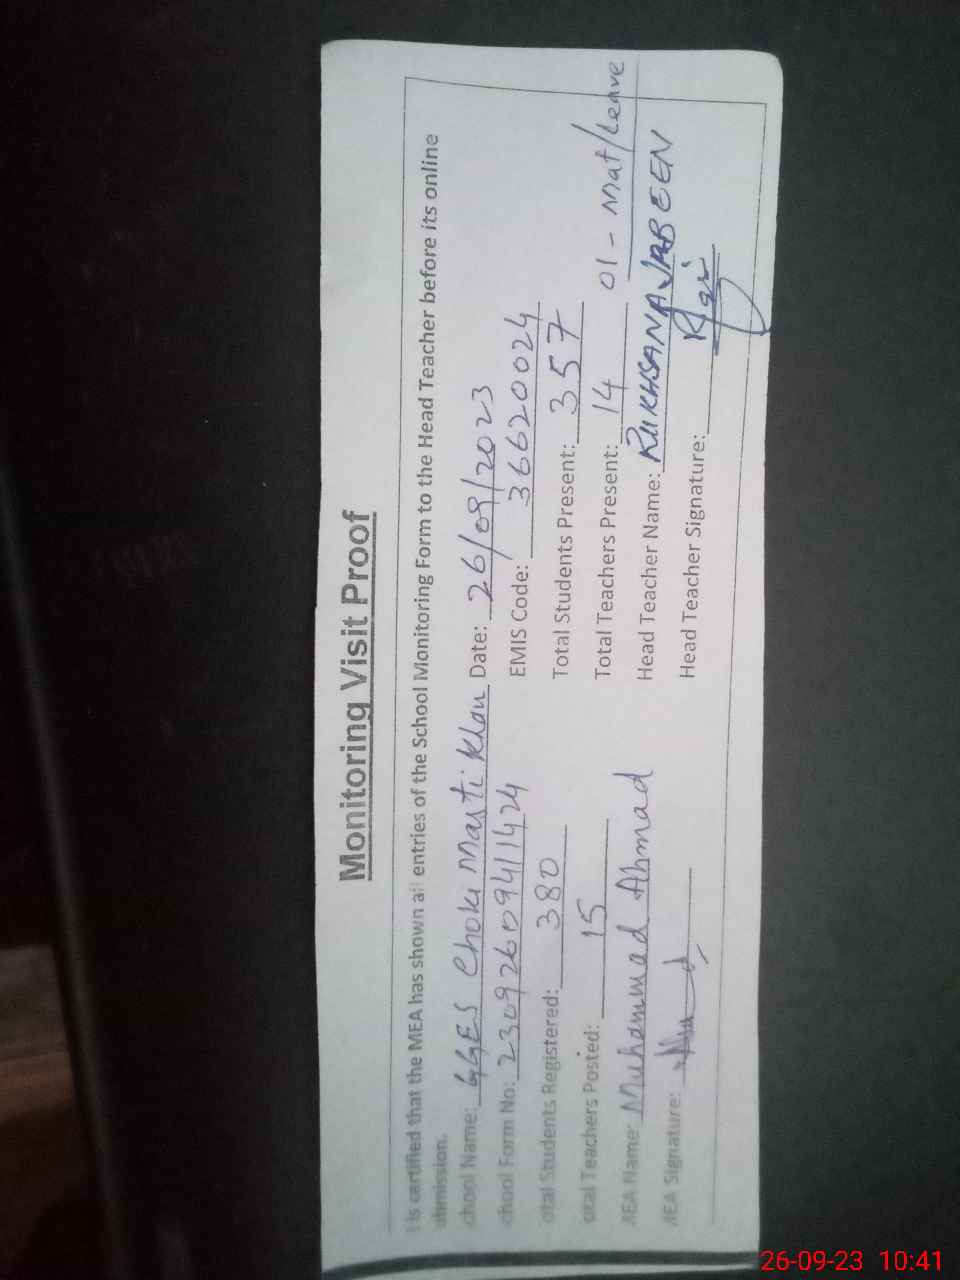 Monitoring Visit Proof
It is certified that the MEA has shown all entries of the School Monitoring Form to the Head Teacher before its online
submission.
School Name: GGES Choki Masti Khan Date: 26/09/2023
School Form No: 23092609411424 EMIS Code: 36620024
Total Students Registered: 380 Total Students Present: 357
Total Teachers Posted: 15 Total Teachers Present: 14 01 - Mat/Leave
MEA Name: Muhammad Ahmad Head Teacher Name: RUKHSANA JABEEN
MEA Signature: Head Teacher Signature:
26-09-23 10:41